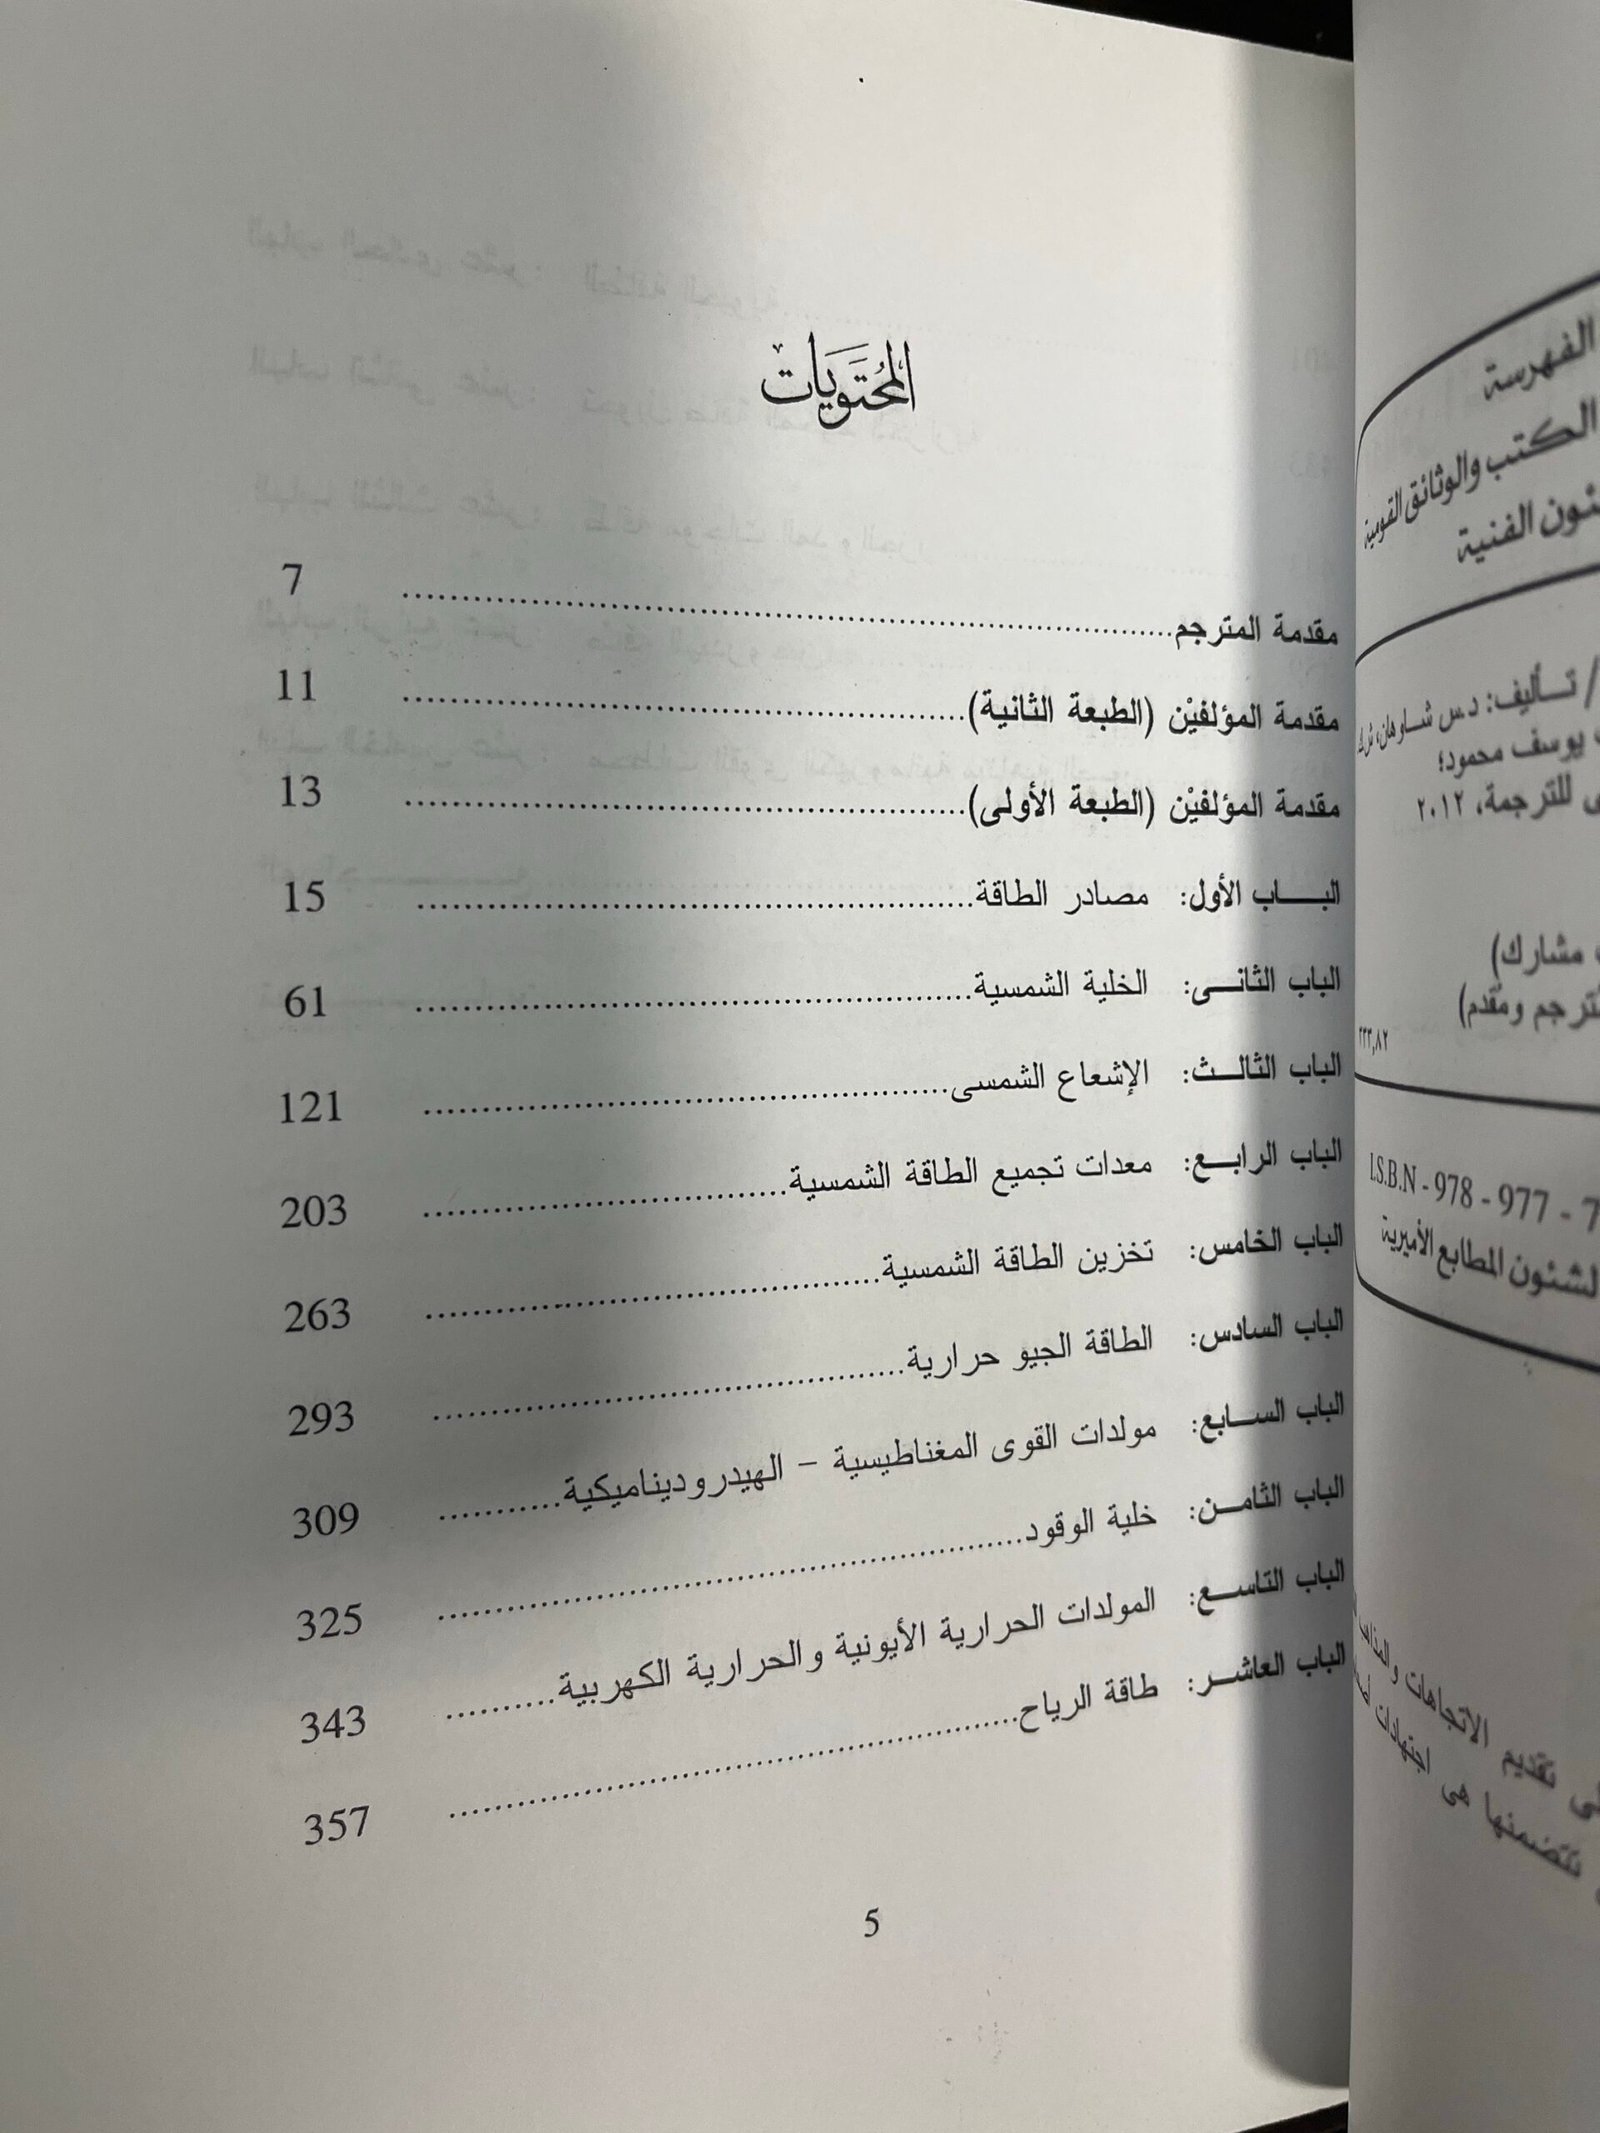 المُحتَوَيات
مقدمة المترجم 7
مقدمة المؤلفيْن (الطبعة الثانية) 11
مقدمة المؤلفيْن (الطبعة الأولى) 13
الباب الأول: مصادر الطاقة 15
الباب الثانى: الخلية الشمسية 61
الباب الثالث: الإشعاع الشمسى 121
الباب الرابع: معدات تجميع الطاقة الشمسية 203
الباب الخامس: تخزين الطاقة الشمسية 263
الباب السادس: الطاقة الجيو حرارية 293
الباب السابع: مولدات القوى المغناطيسية – الهيدروديناميكية 309
الباب الثامن: خلية الوقود 325
الباب التاسع: المولدات الحرارية الأيونية والحرارية الكهربية 343
الباب العاشر: طاقة الرياح 357
5
الفهرسة
الكتب والوثائق القومية
الفنية
/ تأليف: د.س شاوهان،
يوسف محمود؛
للترجمة، ٢٠١٢
مشارك)
ومُقدم)
٣٣٣,٨٢
I.S.B.N - 978 - 977 - 7
لشئون المطابع الأميرية
تقديم الاتجاهات والمذاهب
تتضمنها هى اجتهادات